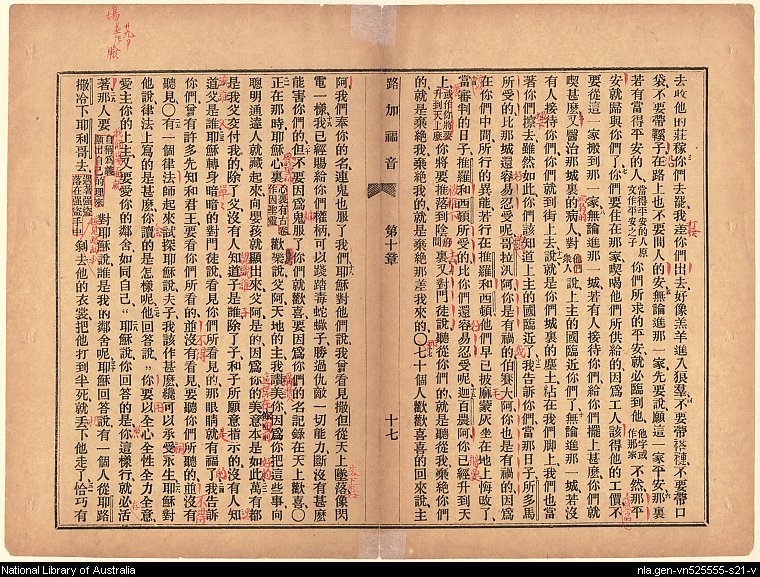 去收他的莊稼你們去罷我差你們出去好像羔羊進入狼羣不要帶搭褳不要帶口
袋不要帶鞋子在路上也不要問人的安無論進那一家先要說願這一家平安那裏
若有當得平安的人當得平安的人原文作平安之子你們所求的平安就必臨到他他字或作那家不然那平
安就歸與你們了你們要住在那家喫喝他們所供給的因爲工人該得他的工價不
要從這一家搬到那一家無論進那一城若有人接待你們給你們擺上甚麼你們就
喫甚麼又醫治那城裏的病人對他們衆人說上主的國臨近你們了無論進那一城若沒
有人接待你們你們就到街上去說就是你們城裏的塵土粘在我們脚上我們也當
着你們擦去雖然如此你們該知道上主的國臨近了我告訴你們當那日子所多馬
所受的比那城還容易忍受呢哥拉汛阿你是有禍的伯賽大阿你也是有禍的因爲
在你們中間所行的異能若行在推羅和西頓他們早已披麻蒙灰坐在地上悔改了
當審判的日子推羅和西頓所受的比你們還容易忍受呢迦百農阿你已經升到天
上或作你將要升到天上麼你將要推落到陰間裏又對門徒說聽從你們的就是聽從我棄絕你們
的就是棄絕我棄絕我的就是棄絕那差我來的〇七十個人歡歡喜喜的回來說主
路加福音 第十章 十七
阿我們奉你的名連鬼也服了我們耶穌對他們說我曾看見撒但從天上墜落像閃
電一樣我已經賜給你們權柄可以踐踏毒蛇蠍子勝過仇敵一切能力斷沒有甚麼
能害你們的但不要因爲鬼服了你們就歡喜要因爲你們的名記錄在天上歡喜〇
正在那時耶穌心裏心裏有古卷作因聖靈歡樂說父阿天地的主我讚美你因爲你把這些事向
聰明通達人就藏起來向嬰孩就顯出來父阿是的因爲你的美意本是如此萬有都
是我父交付我的除了父沒有人知道子是誰除了子和子所願意指示的沒有人知
道父是誰耶穌轉身暗暗的對門徒說看見你們所看見的那眼睛就有福了我告訴
你們曾有許多先知和君王要看你們所看的並沒有看見要聽你們所聽的並沒有
聽見〇有一個律法師起來試探耶穌說夫子我該作甚麼纔可以承受永生耶穌對
他說律法上寫的是甚麼你讀的是怎樣呢他回答說你要以全心全性全力全意
愛主你的上主又要愛你的鄰舍如同自己耶穌說你回答的是你這樣行就必活
著那人要自稱爲義顯出自己的理來對耶穌說誰是我的鄰舍呢耶穌回答說有一個人從耶路
撒冷下耶利哥去遇著強盜落在强盜手中剝去他的衣裳把他打到半死就丟下他走了恰巧有
National Library of Australia
nla.gen-vn525555-s21-v